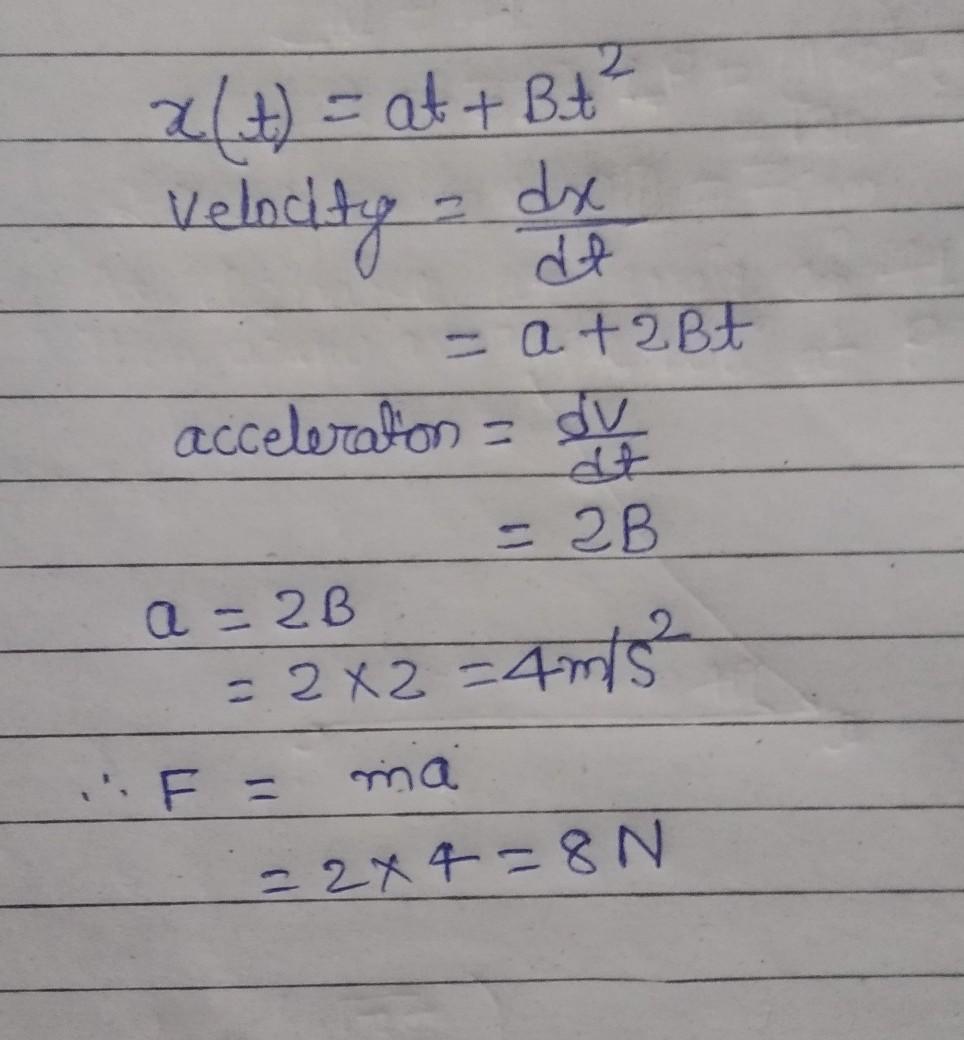 x(t) = at + Bt²
velocity = dx/dt
= a + 2Bt
acceleration = dv/dt
= 2B
a = 2B
= 2 × 2 = 4 m/s²
∴ F = ma
= 2 × 4 = 8 N